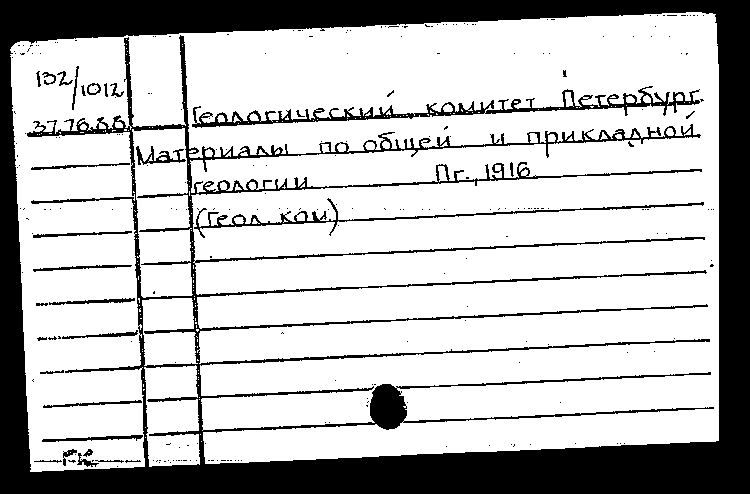 132/1012
37.76.88 Геологический комитет Петербург.
Материалы по общей и прикладной
геологии Пг., 1916
(Геол. ком.)
ГК